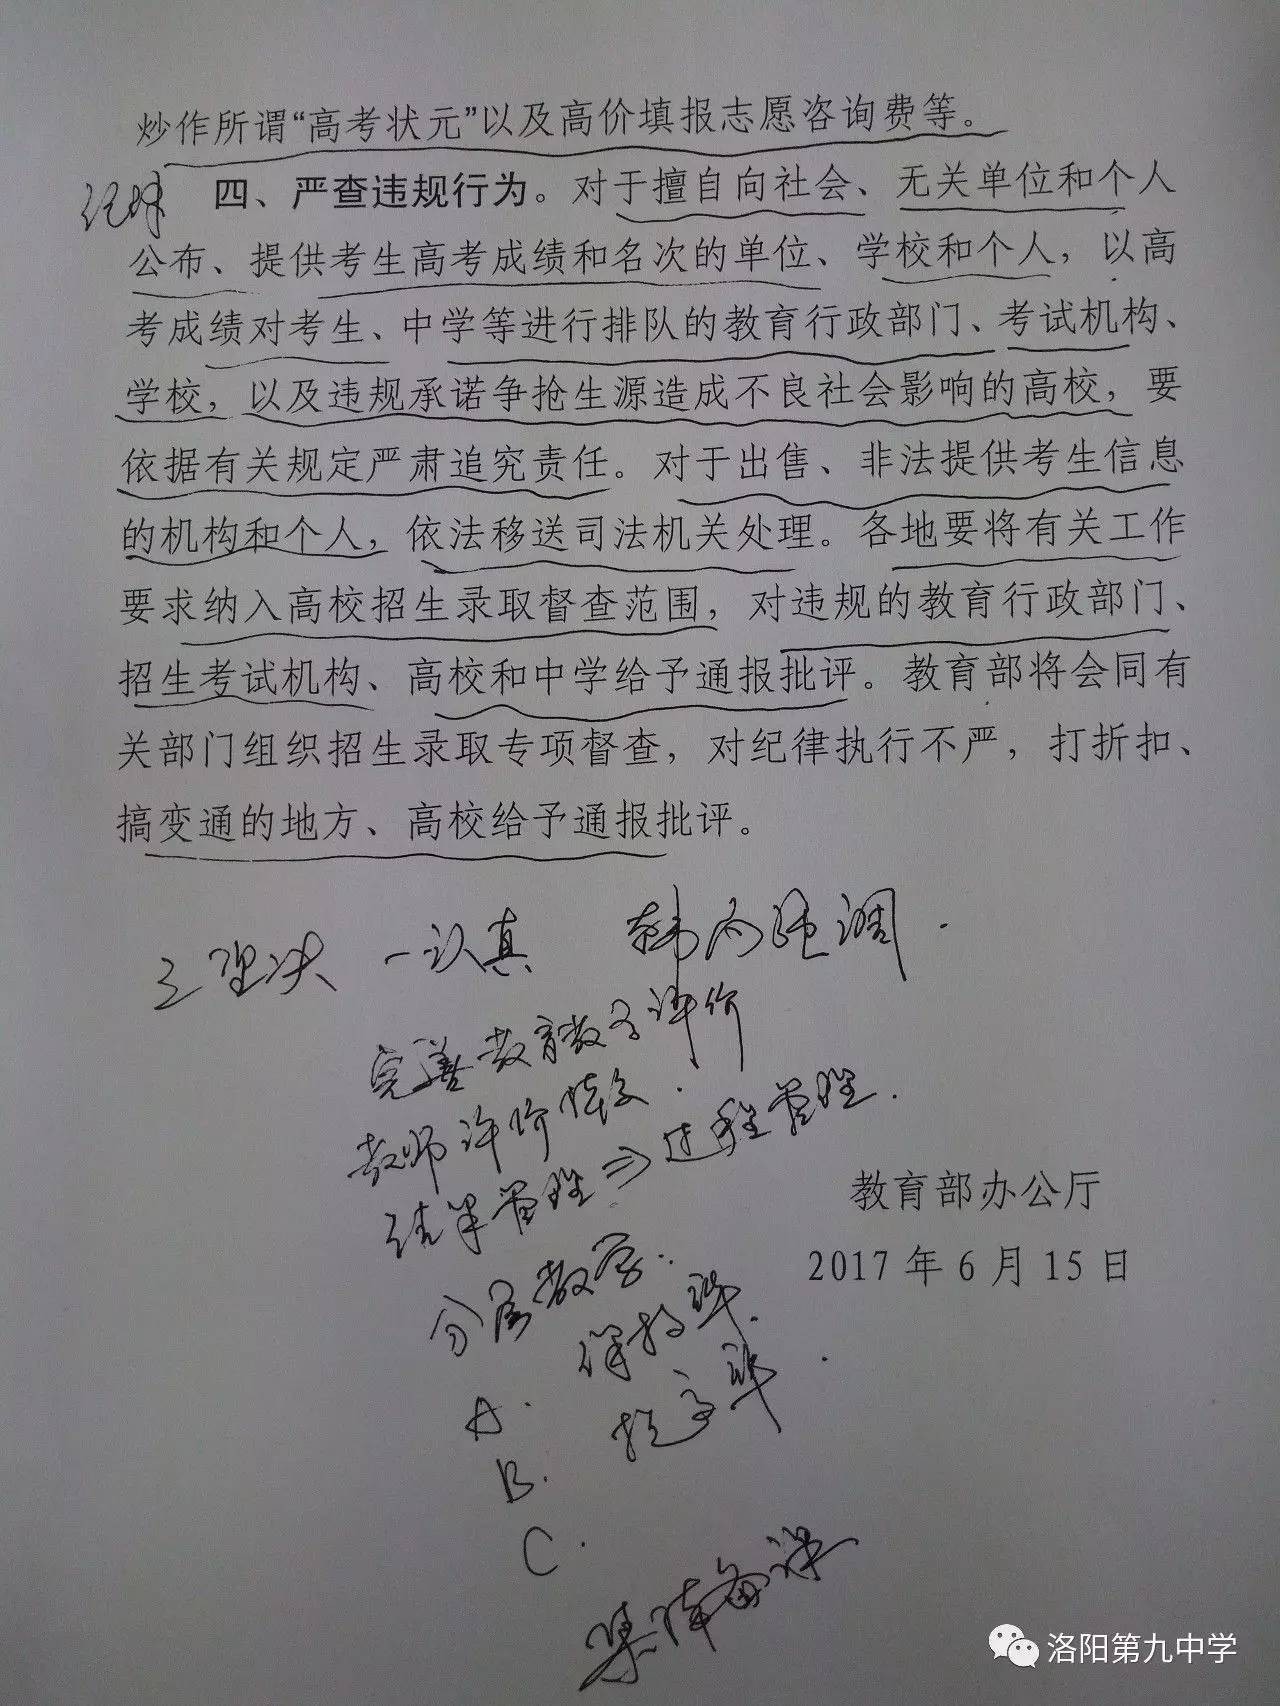 炒作所谓“高考状元”以及高价填报志愿咨询费等。
四、严查违规行为。对于擅自向社会、无关单位和个人
公布、提供考生高考成绩和名次的单位、学校和个人，以高
考成绩对考生、中学等进行排队的教育行政部门、考试机构、
学校，以及违规承诺争抢生源造成不良社会影响的高校，要
依据有关规定严肃追究责任。对于出售、非法提供考生信息
的机构和个人，依法移送司法机关处理。各地要将有关工作
要求纳入高校招生录取督查范围，对违规的教育行政部门、
招生考试机构、高校和中学给予通报批评。教育部将会同有
关部门组织招生录取专项督查，对纪律执行不严，打折扣、
搞变通的地方、高校给予通报批评。
一认真 强调.
完善教育教学评价
教师评价
结果管理⇒过程管理.
教育部办公厅
2017年6月15日
分层教学:
A.
B.
C.
集体备课
洛阳第九中学